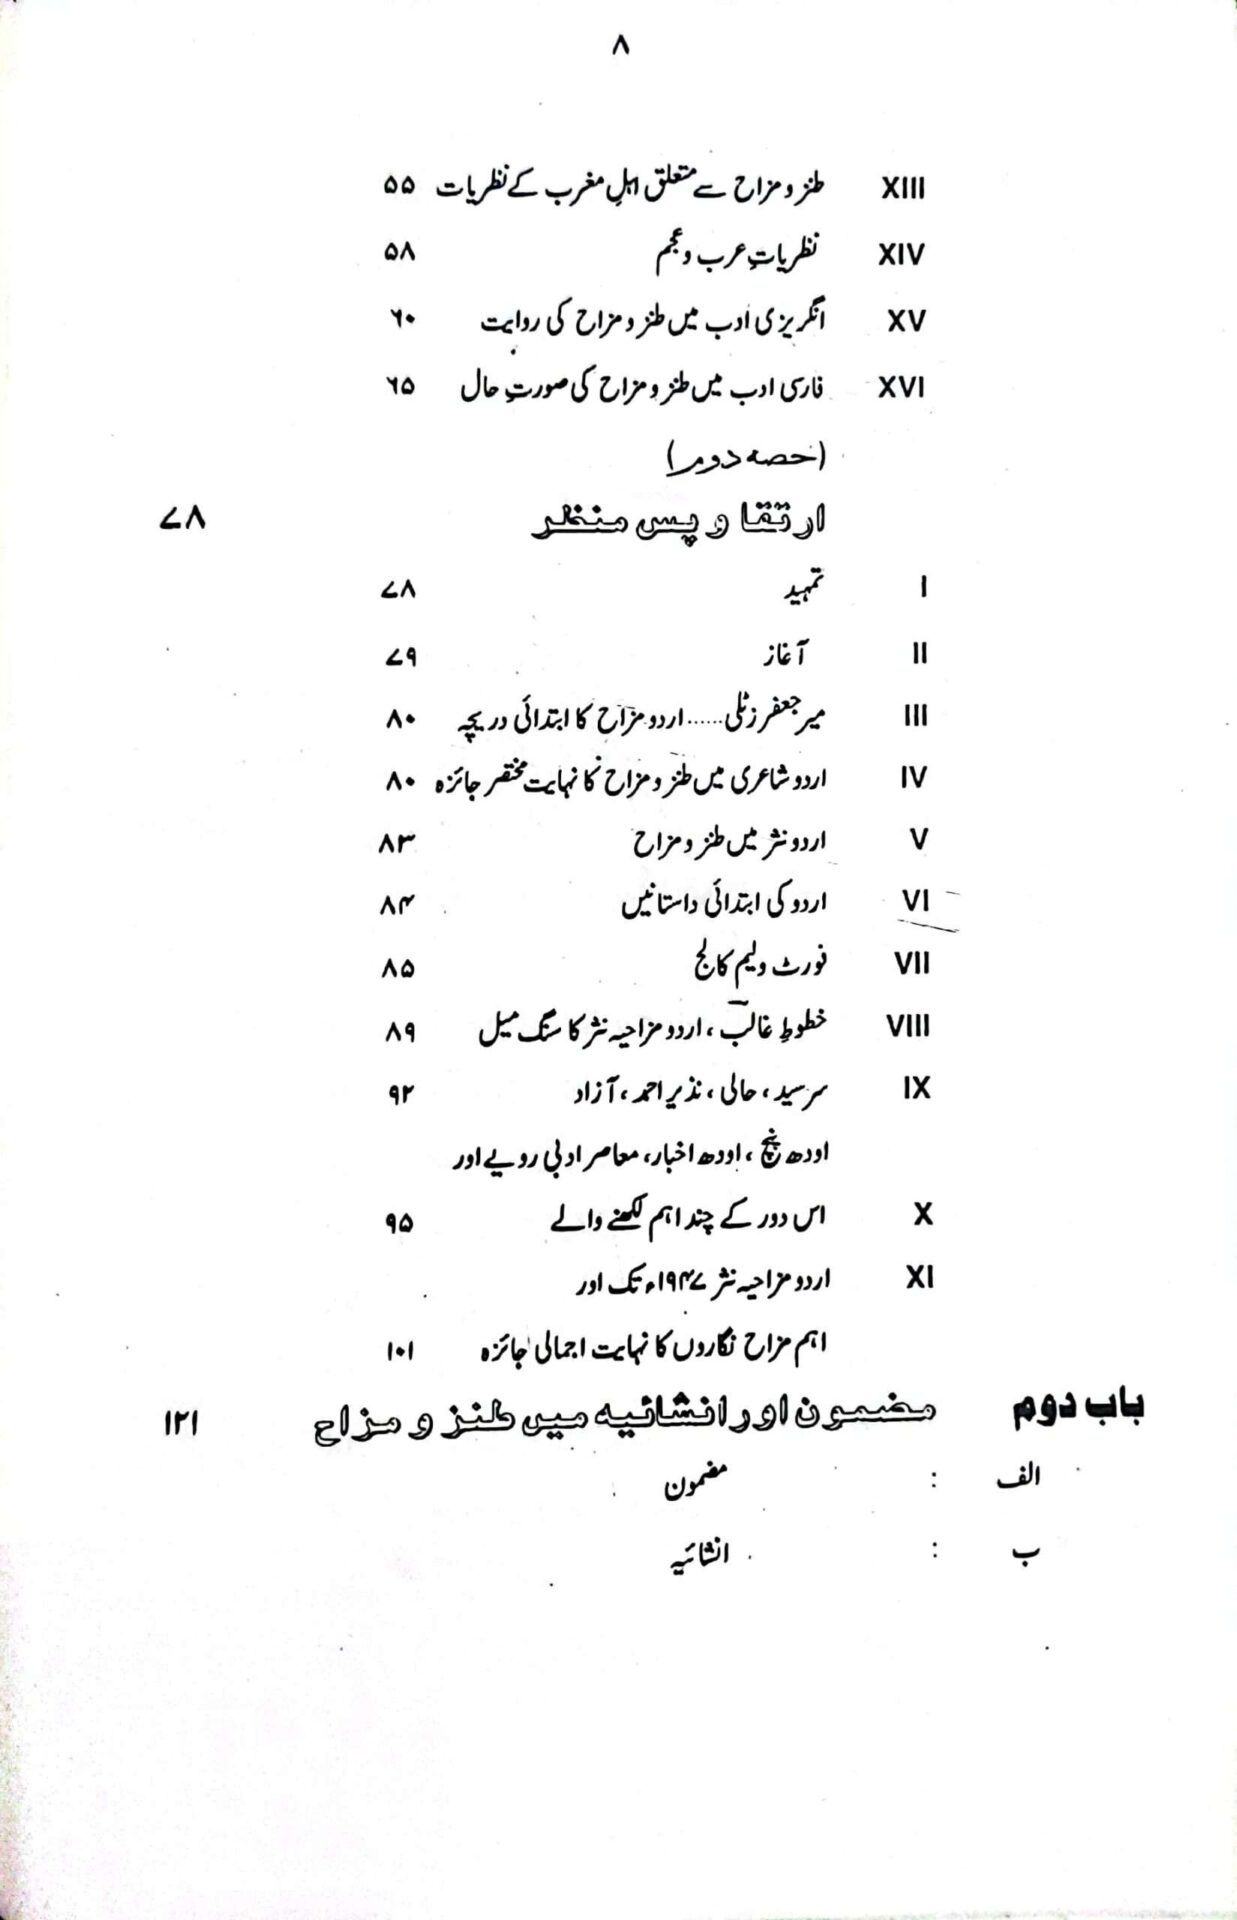 ۸
XIII طنز و مزاح سے متعلق اہلِ مغرب کے نظریات ۵۵
XIV نظریاتِ عرب و عجم ۵۸
XV انگریزی ادب میں طنز و مزاح کی روایت ۶۰
XVI فارسی ادب میں طنز و مزاح کی صورتِ حال ۶۵
(حصہ دوم)
ارتقا و پس منظر ۷۸
I تمہید ۷۸
II آغاز ۷۹
III میر جعفر زٹلی...... اردو مزاح کا ابتدائی دریچہ ۸۰
IV اردو شاعری میں طنز و مزاح کا نہایت مختصر جائزہ ۸۰
V اردو نثر میں طنز و مزاح ۸۳
VI اردو کی ابتدائی داستانیں ۸۴
VII فورٹ ولیم کالج ۸۵
VIII خطوطِ غالب، اردو مزاحیہ نثر کا سنگ میل ۸۹
IX سرسید، حالی، نذیر احمد، آزاد ۹۲
اودھ پنچ، اودھ اخبار، معاصر ادبی رویے اور
X اس دور کے چند اہم لکھنے والے ۹۵
XI اردو مزاحیہ نثر ۱۹۴۷ء تک اور
اہم مزاح نگاروں کا نہایت اجمالی جائزہ ۱۰۱
باب دوم مضمون اور انشائیہ میں طنز و مزاح ۱۲۱
الف : مضمون
ب : انشائیہ